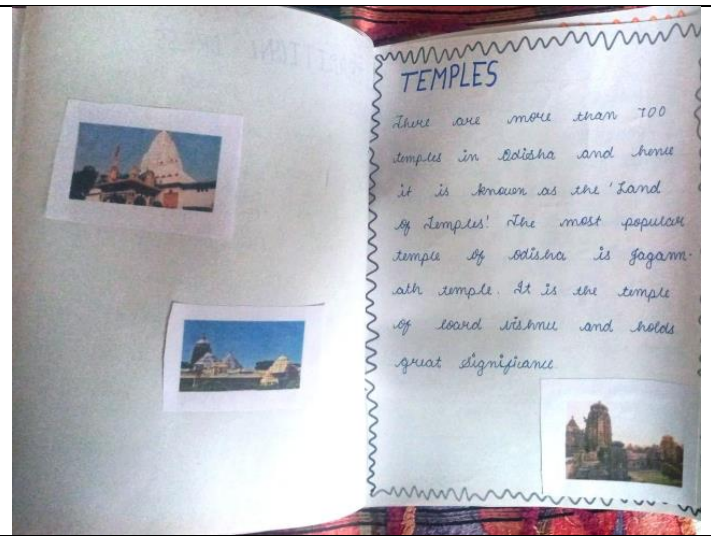 TEMPLES
There are more than 700
temples in Odisha and hence
it is known as the 'Land
of Temples'. The most popular
temple of odisha is Jagann-
ath temple. It is the temple
of loard vishnu and holds
great significance.